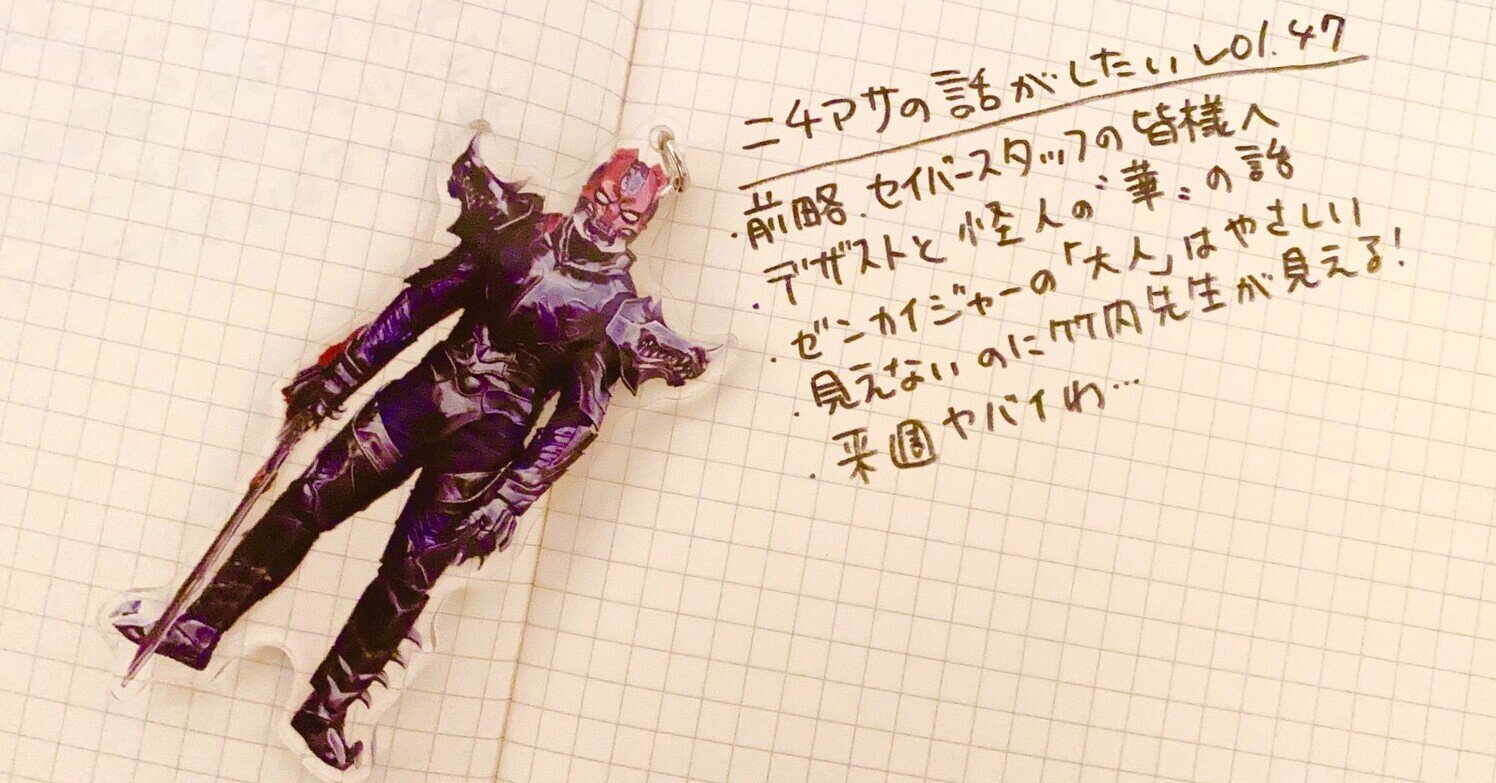 ニチアサの話がしたい vol.47
・前略、セイバースタッフの皆様へ
・デザストと怪人の〝華〟の話
・ゼンカイジャーの「大人」はやさしい
・見えないのに竹内先生が見える!
・来週ヤバイわ…